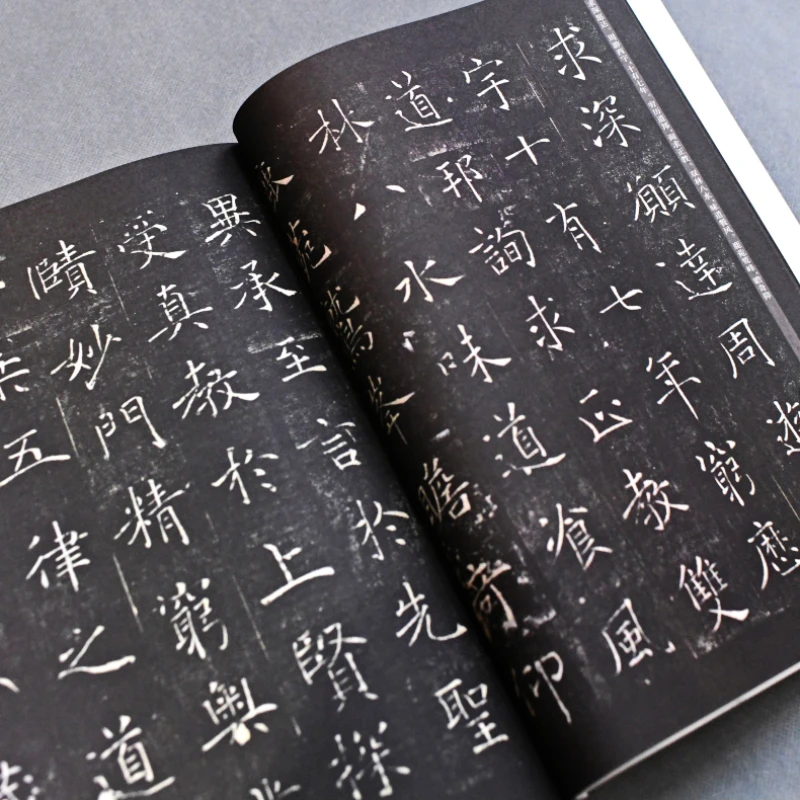 求深願達周遊
宇十有七年窮歷
道邦詢求正教雙
林八水味道飡風
鷲峯瞻奇仰
異承至言於先聖
受真教於上賢探
賾妙門精窮奧
乘五律之道